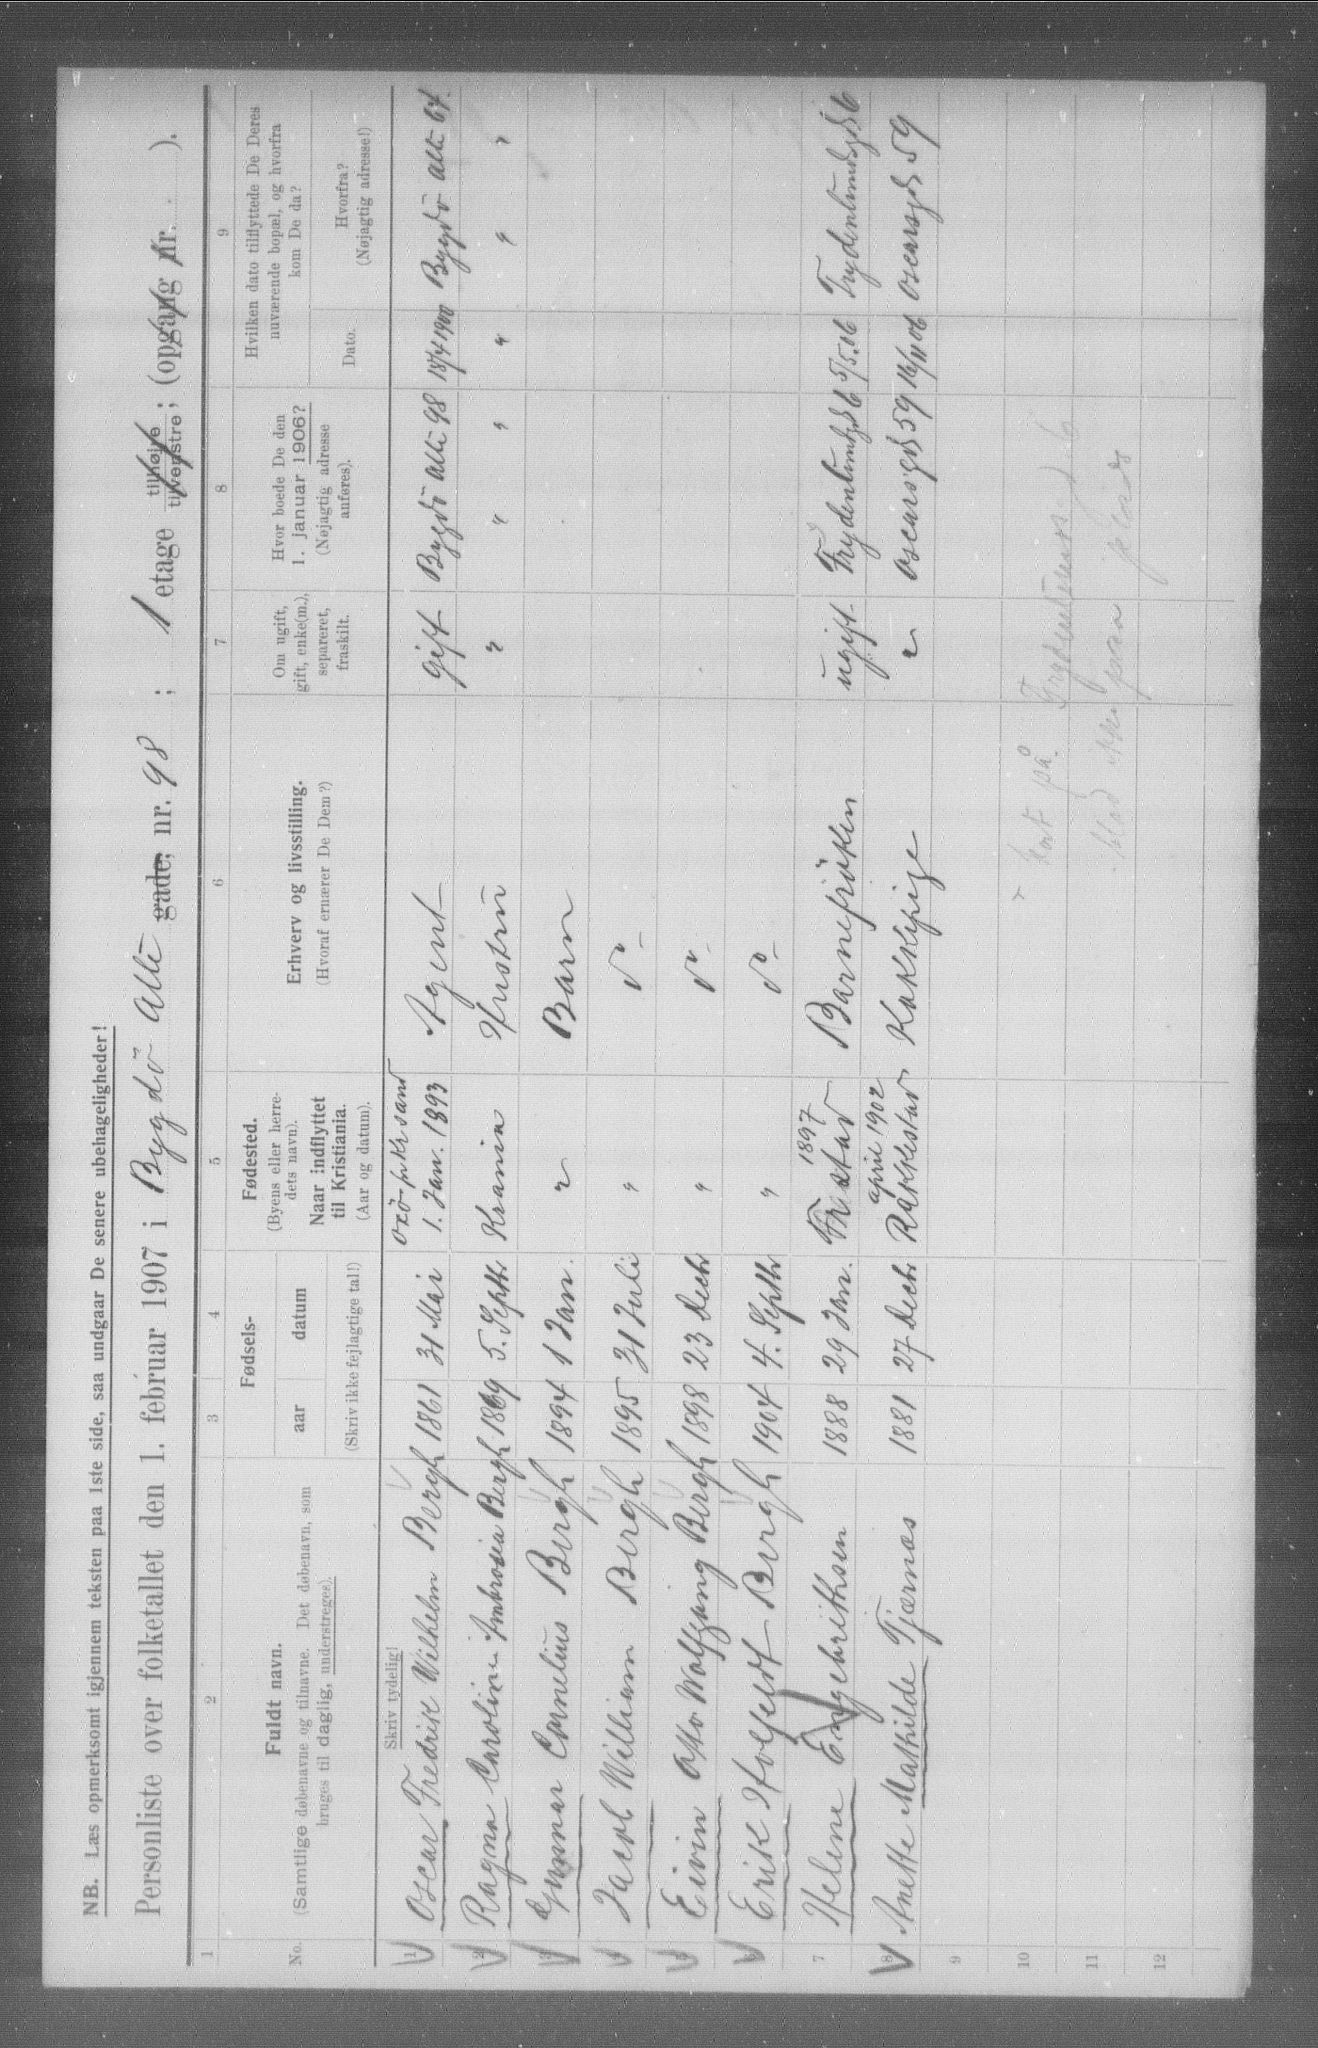 NB. Læs opmerksomt igjennem teksten paa 1ste side, saa undgaar De senere ubehageligheder!
Personliste over folketallet den 1. februar 1907 i Bygdö Allé gade, nr. 98 ; 1 etage tilhøjre tilvenstre ; (opgang nr. ).
1 2 3 4 5 6 7 8 9
No.
Fuldt navn.
(Samtlige døbenavne og tilnavne. Det døbenavn, som
bruges til daglig, understreges).
Fødsels-
aar datum
(Skriv ikke fejlagtige tal!)
Fødested.
(Byens eller herre-
dets navn).
Naar indflyttet
til Kristiania.
(Aar og datum).
Erhverv og livsstilling.
(Hvoraf ernærer De Dem?)
Om ugift,
gift, enke(m.),
separeret,
fraskilt.
Hvor boede De den
1. januar 1906?
(Nøjagtig adresse
anføres).
Hvilken dato tilflyttede De Deres
nuværende bopæl, og hvorfra
kom De da?
Dato.
Hvorfra?
(Nøjagtig adresse!)
Skriv tydelig!
1 Oscar Fredrik Wilhelm Bergh 1861 31 Mai 1. Jan. 1893 Agent gift Bygdö allé 98 18/4 1900 Bygdö allé 64.
2 Ragna Caroline Ambrosia Bergh 1869 5. Septbr Krania Hustru " " " " " "
3 Gunnar Cornelius Bergh 1894 1 Jan. " Barn
4 Jacob William Bergh 1895 31 Juli " do
5 Eivin Otto Wolfgang Bergh 1898 23 Decbr " do
6 Erik Holfeldt Bergh 1904 4. Septbr " do
7 Helene Engebrithsen 1888 29 Jan. 1897 Barnefröken ugift Frydenlundgd 6 5/5.06 Frydenlundsgd 6
8 Anette Mathilde Tjærnæs 1881 27 Decbr april 1902 Rakkestad Kokkepige " Oscarsgd 59 16/11 06 Oscarsgd 59
9
10 kort på Frydenlundsgd. 6
11
12